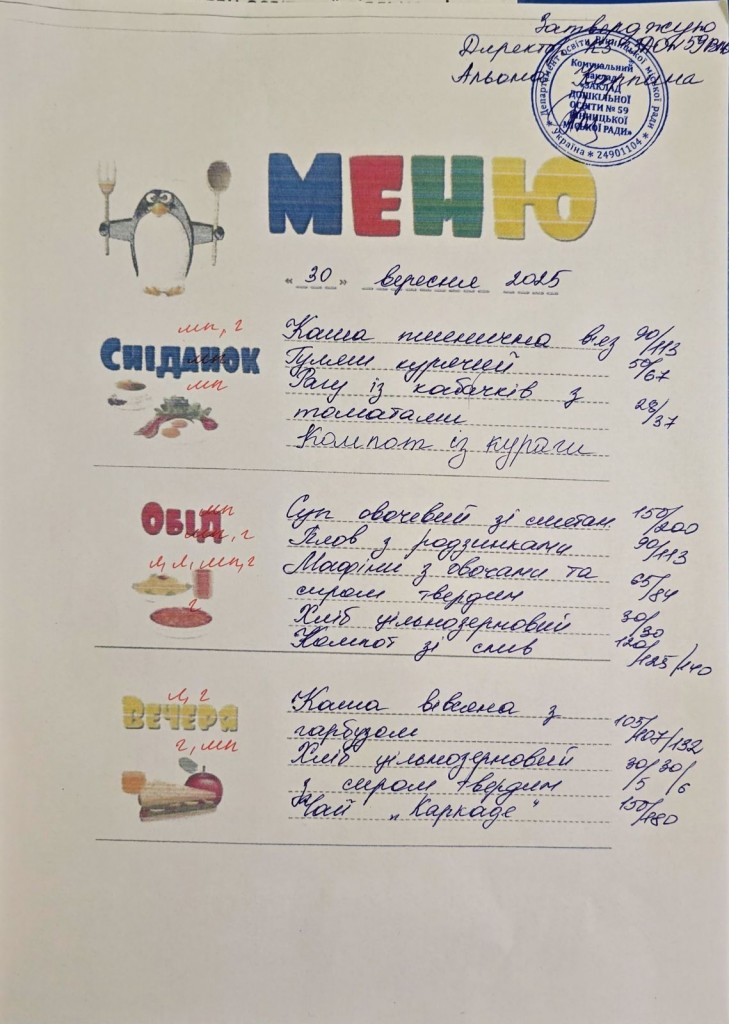 Затверджую
Директор КЗ "ЗДО № 59 ВМР"
Альона Карпата
Департамент освіти Вінницької міської ради
Комунальний
заклад
«ЗАКЛАД
ДОШКІЛЬНОЇ
ОСВІТИ № 59
ВІННИЦЬКОЇ
МІСЬКОЇ РАДИ»
* Україна * 24901104 *
МЕНЮ
« 30 » вересня 2025
мп, г
Каша пшенична в'яз 90/113
СНІДАНОК
мп
Гуляш курячий 50/67
мп
Рагу із кабачків з
томатами 28/37
Компот із кураги
ОБІД
мп
Суп овочевий зі сметан 150/200
мп, г
Плов з родзинками 90/113
я, л, мп, г
Мафіни з овочами та
сиром твердим 65/84
г
Хліб цільнозерновий 30/30
Компот зі слив 120/125/140
л, г
Каша вівсяна з
ВЕЧЕРЯ
гарбузом 105/107/132
г, мп
Хліб цільнозерновий 30/5 30/6
з сиром твердим
Чай „Каркаде" 150/180